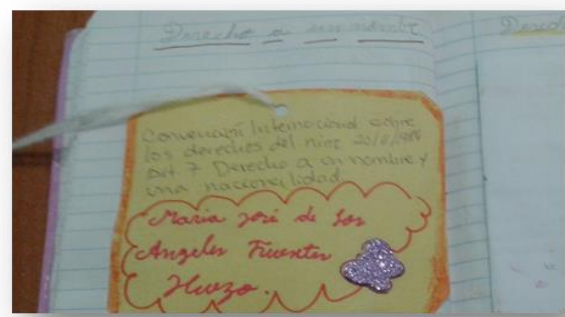 Derecho a un nombre
Convención Internacional sobre
los derechos del niño 20/11/1989
art 7 Derecho a un nombre y
una nacionalidad
Maria José de los
Angeles Fuentes